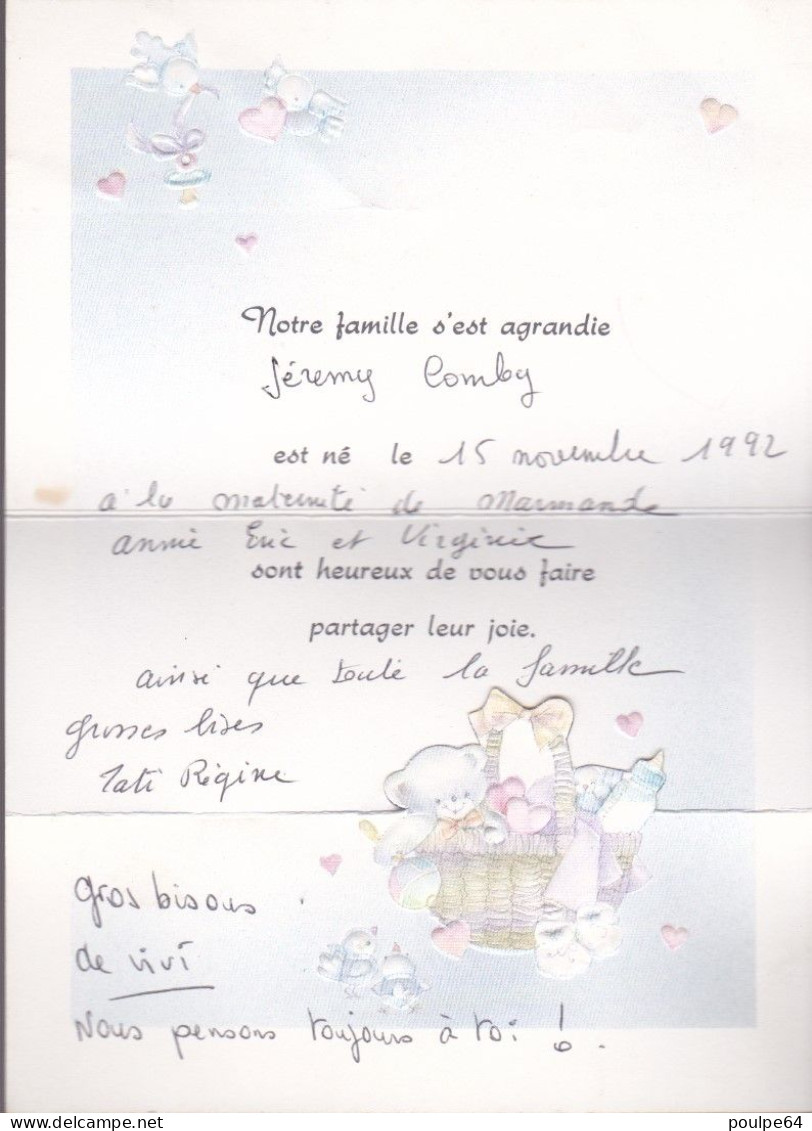 Notre famille s'est agrandie
Jéremy Comby
est né le 15 novembre 1992
a la maternité de Marmande
annie Eric et Virginie
sont heureux de vous faire
partager leur joie.
ainsi que toute la famille
grosses bises
Tati Régine
Gros bisous
de vivi
Nous pensons toujours à toi !
www.delcampe.net
poulpe64